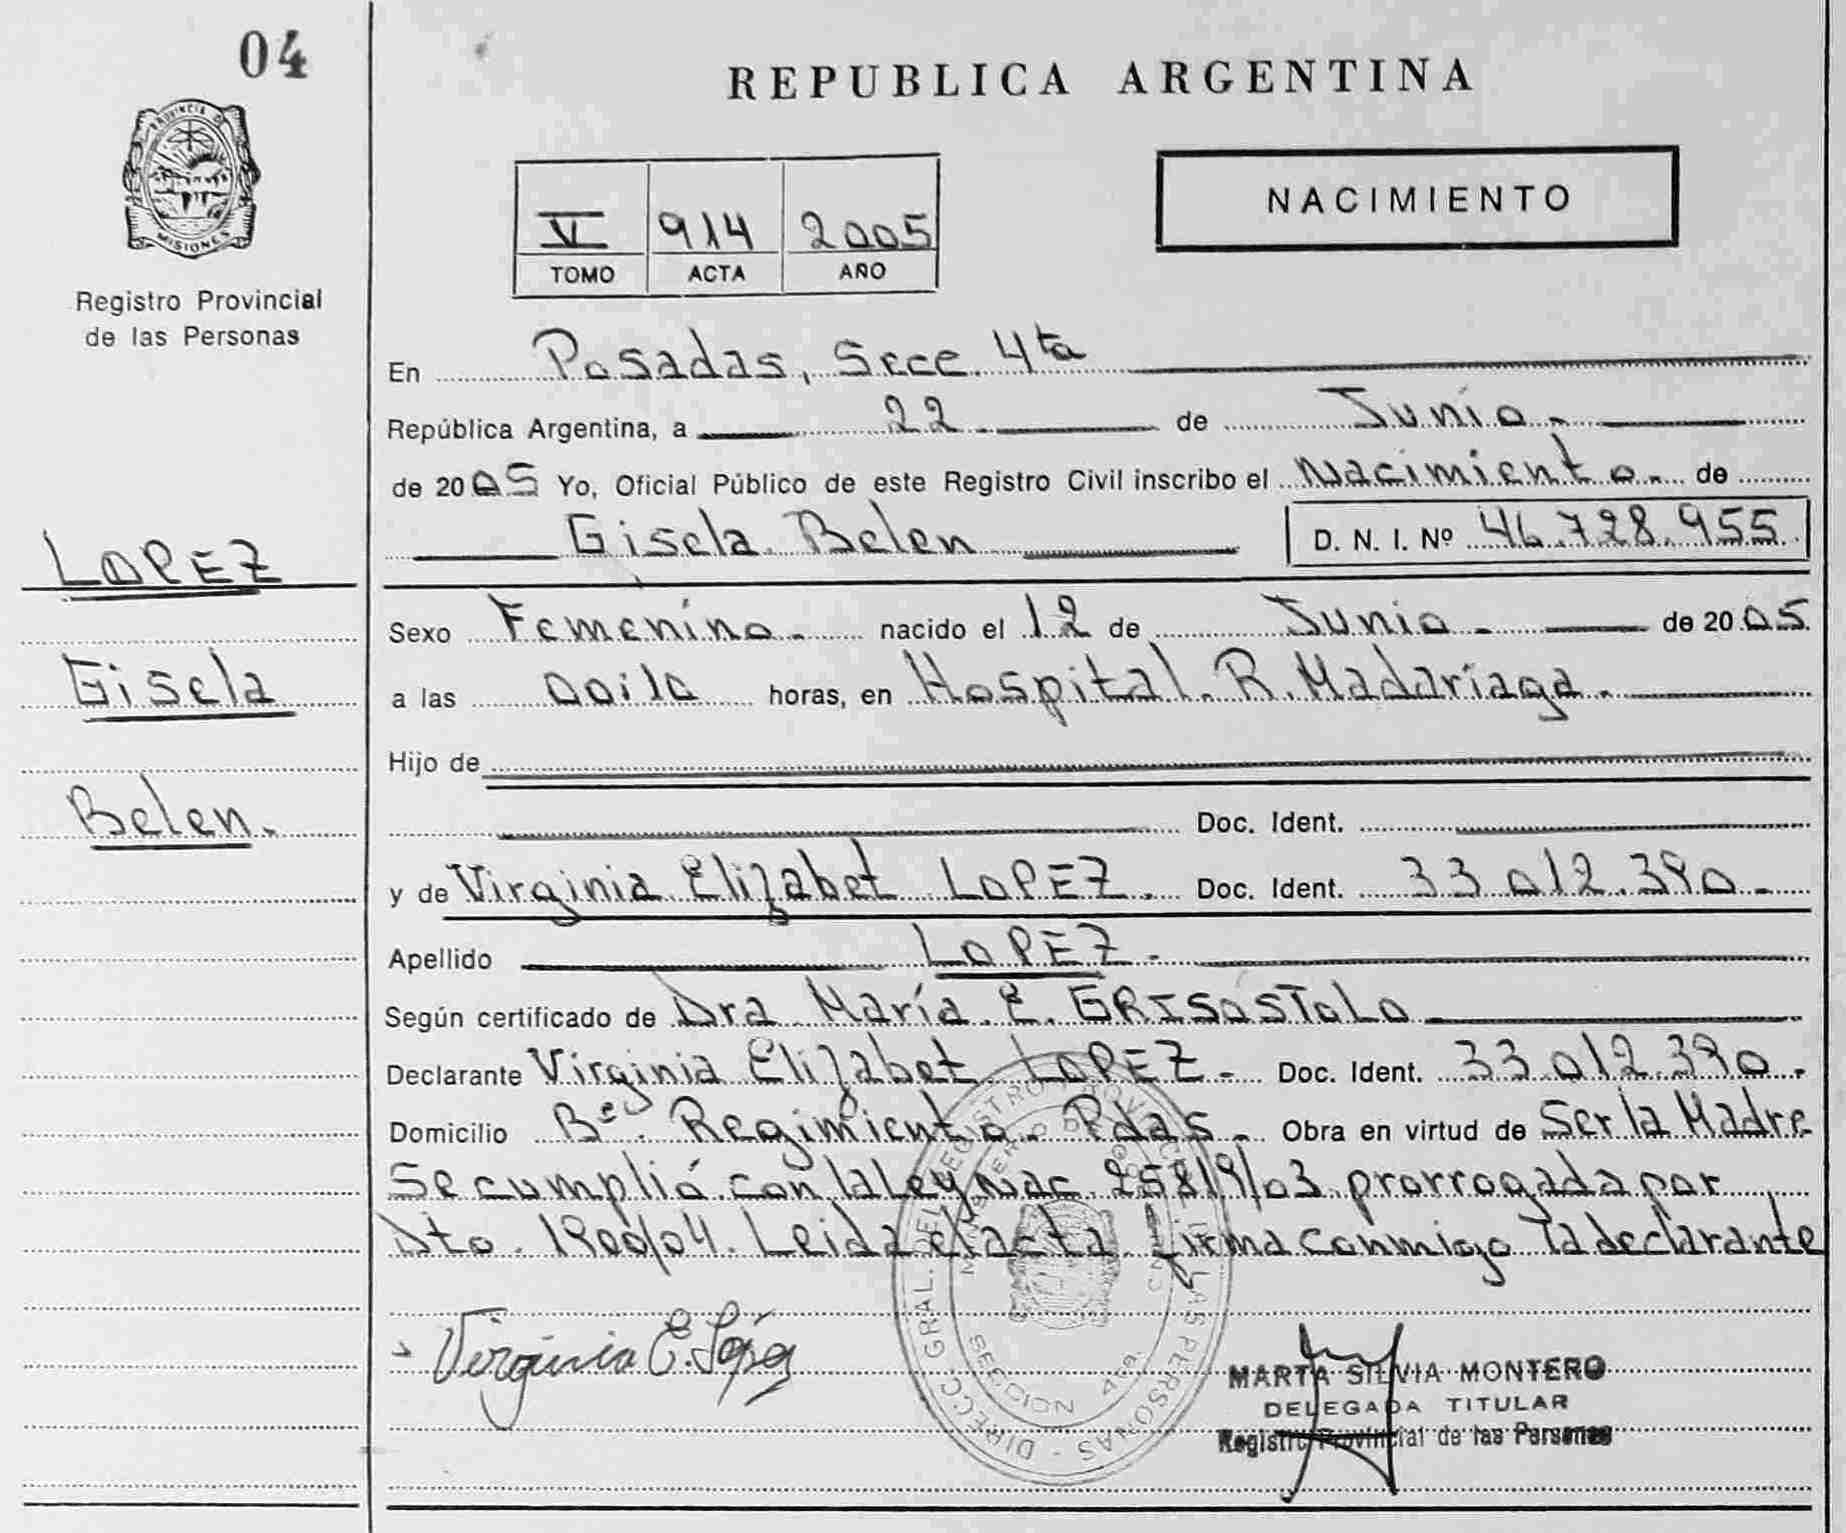 04
REPUBLICA ARGENTINA
PROVINCIA DE
MISIONES
Registro Provincial
de las Personas
V 914 2005
TOMO ACTA AÑO
NACIMIENTO
En Posadas, Secc. 4ta
República Argentina, a 22 de Junio.
de 2005 Yo, Oficial Público de este Registro Civil inscribo el Nacimiento. de
Gisela Belen D. N. I. Nº 46.728.955
LOPEZ
Gisela
Belen.
Sexo Femenino. nacido el 12 de Junio. de 2005.
a las horas, en Hospital R. Madariaga.
Hijo de
Doc. Ident.
y de Virginia Elizabet LOPEZ. Doc. Ident. 33.012.390.
Apellido LOPEZ.
Según certificado de Dra María E. GRISOSTOLO
Declarante Virginia Elizabet LOPEZ. Doc. Ident. 33.012.390.
Domicilio Bº. Regimiento. Pdas. Obra en virtud de Ser la Madre
Se cumplió con la Ley Nac 25819/03 prorrogada por
Dto. 1900/04. Leida el acta firma conmigo la declarante
Virginia E. López
DIRECC. GRAL. DEL REGISTRO DE LAS PERSONAS
SECCION 4ta
MARTA SILVIA MONTERO
DELEGADA TITULAR
Registro Provincial de las Personas